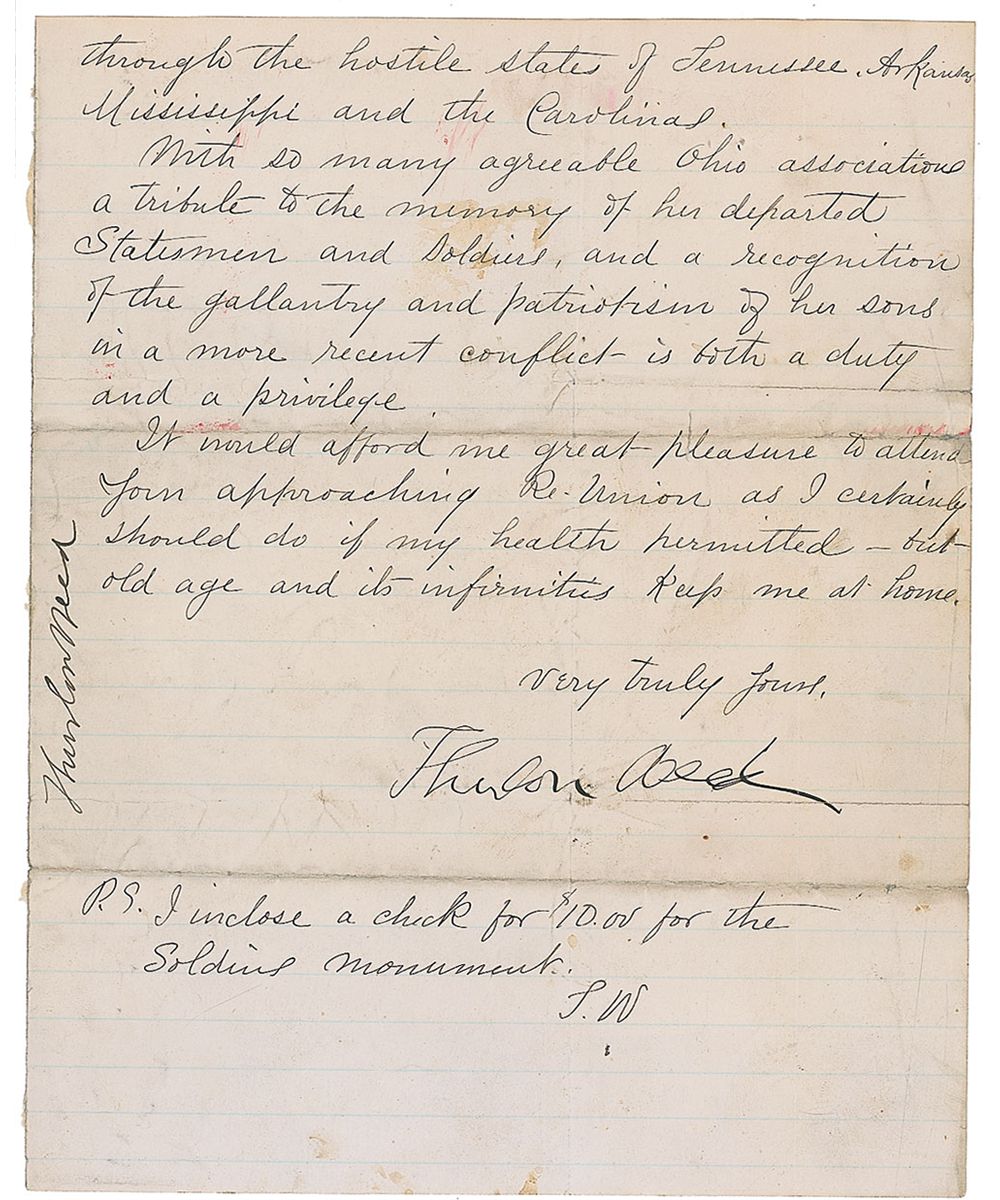 through the hostile states of Tennessee, Arkansas
Mississippi and the Carolinas.
With so many agreeable Ohio associations
a tribute to the memory of her departed
Statesmen and Soldiers, and a recognition
of the gallantry and patriotism of her sons
in a more recent conflict is both a duty
and a privilege
It would afford me great pleasure to attend
Your approaching Re-Union as I certainly
should do if my health permitted – but
old age and its infirmities keep me at home.
Very truly Yours,
Thurlow Weed
P.S. I inclose a check for $10.00 for the
Soldiers monument.
T. W
Thurlow Weed